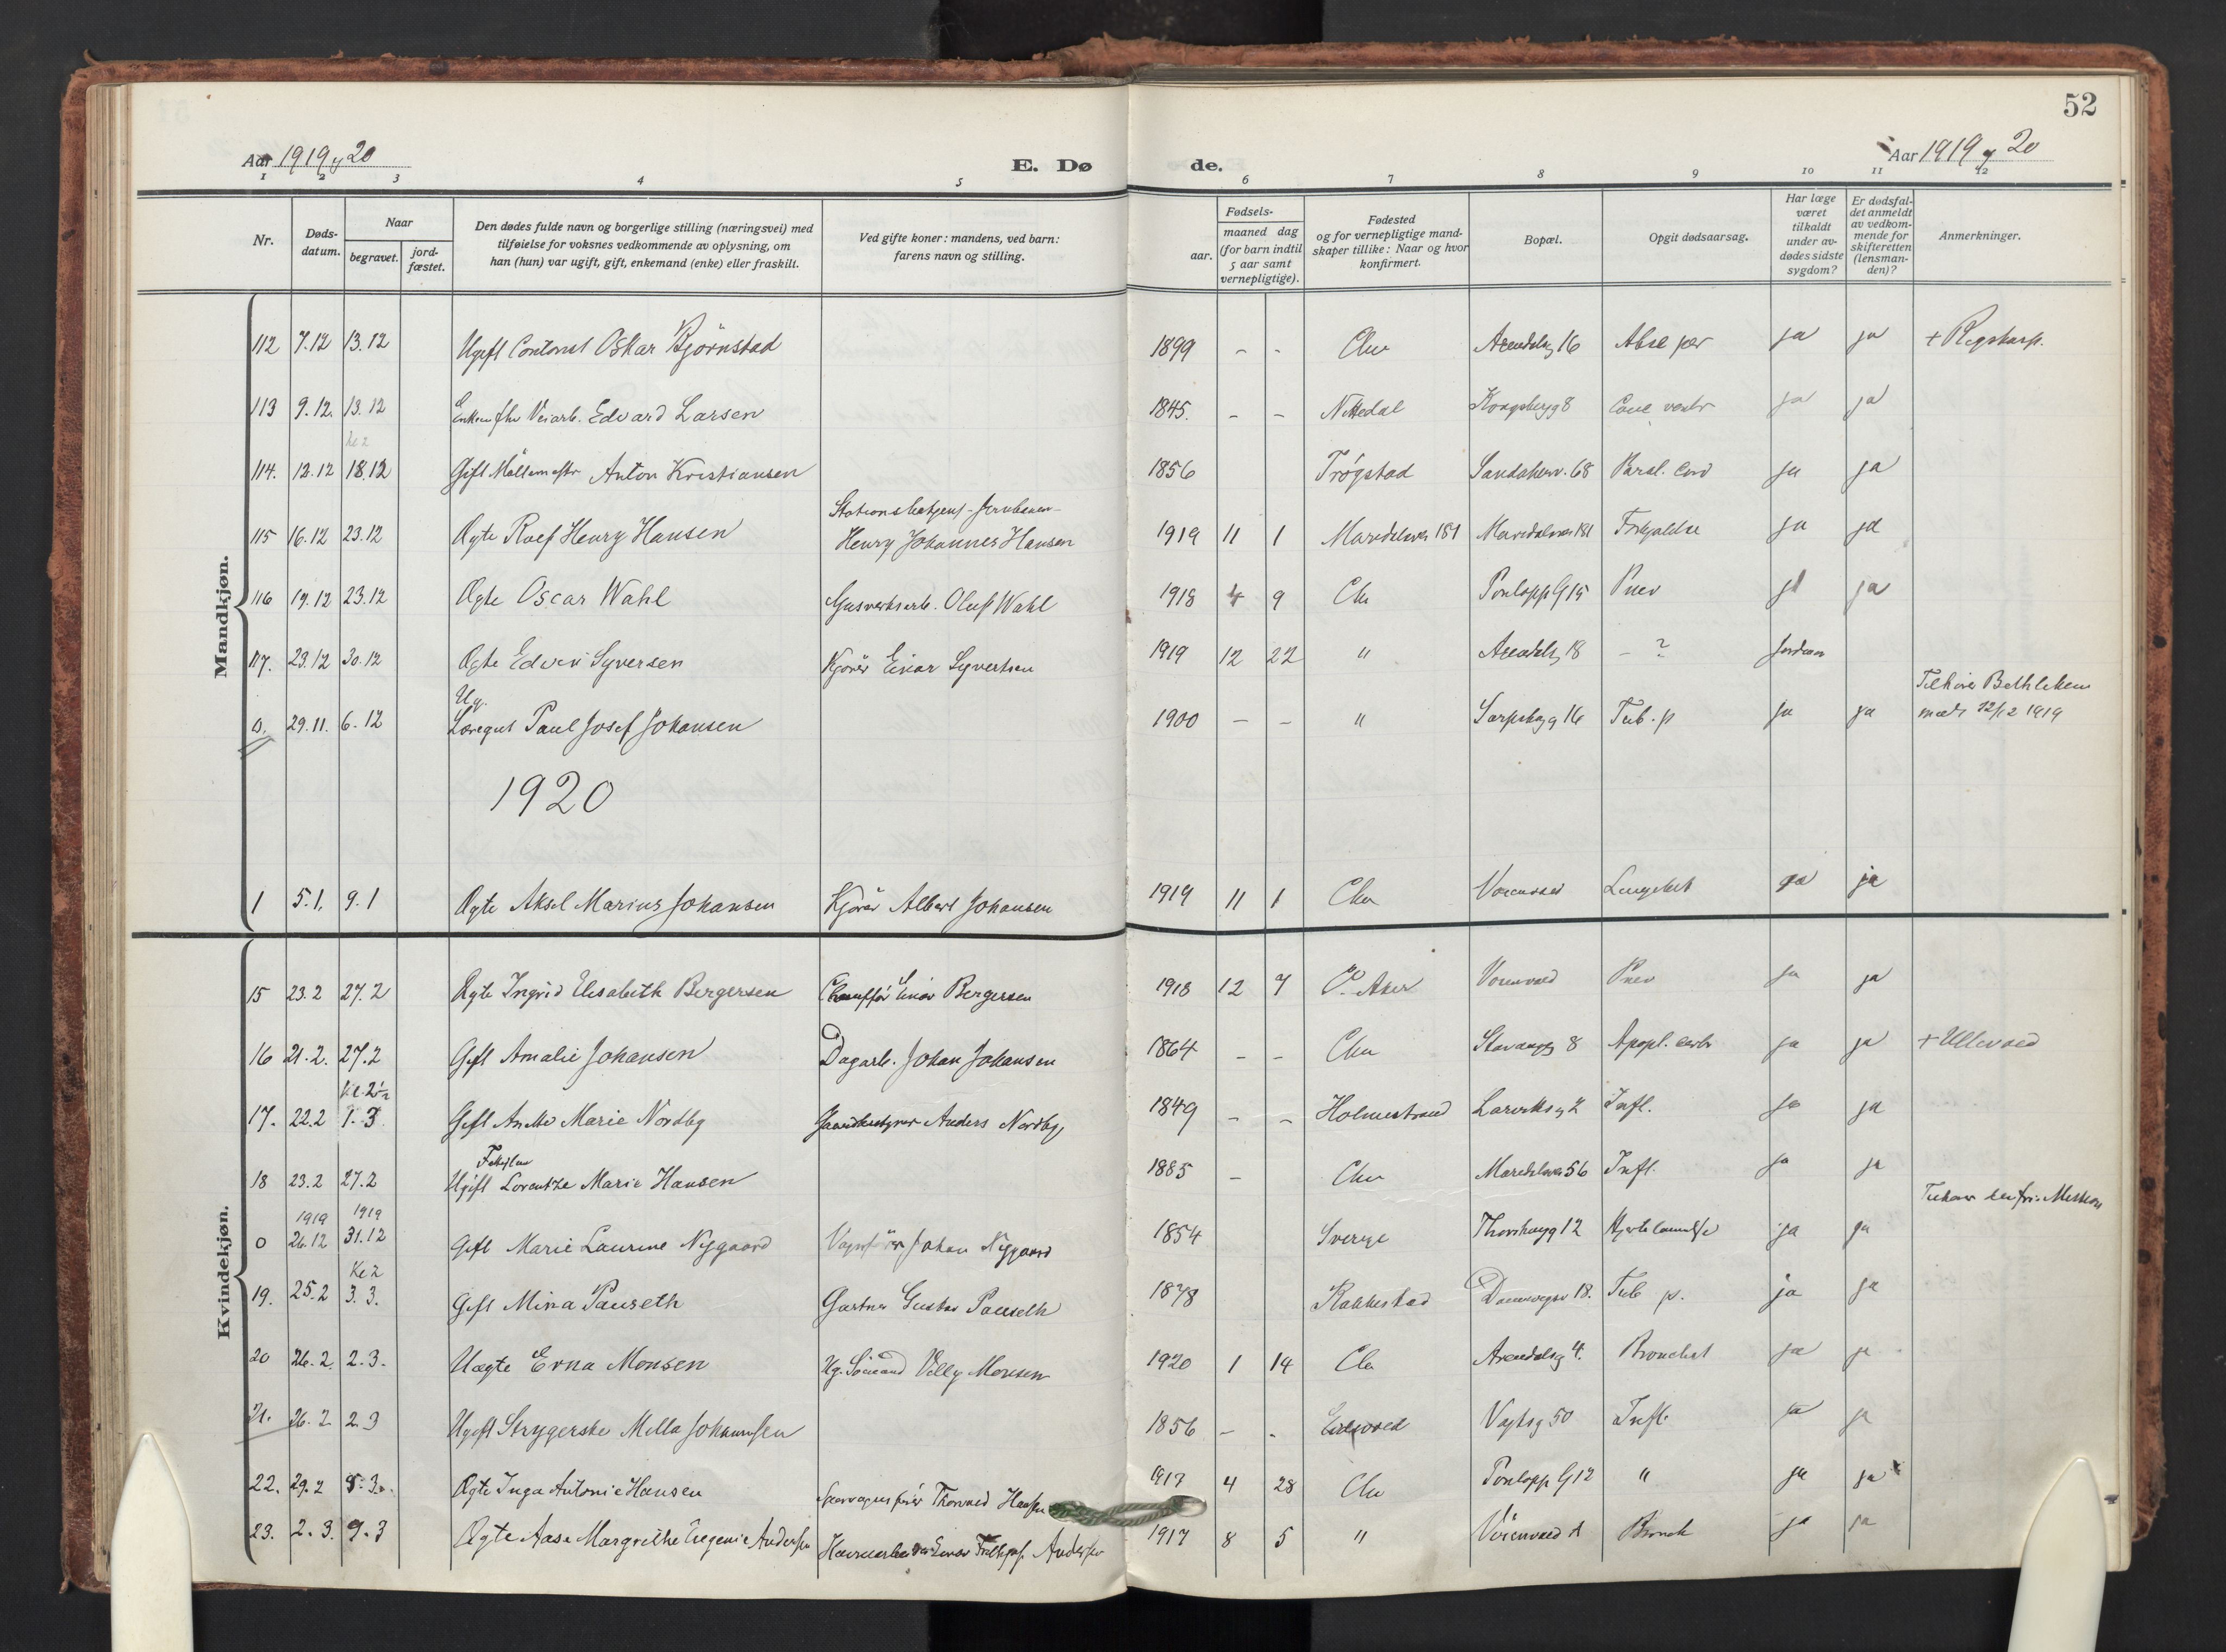 52
Aar 1919 og 20
E. Dø de.
Aar 1919 og 20
1 2 3 4 5 6 7 8 9 10 11 12
Nr. Døds-datum. Naar begravet. jord-fæstet. Den dødes fulde navn og borgerlige stilling (næringsvei) med tilføielse for voksnes vedkommende av oplysning, om han (hun) var ugift, gift, enkemand (enke) eller fraskilt. Ved gifte koner: mandens, ved barn: farens navn og stilling. Fødsels- aar. maaned dag (for barn indtil 5 aar samt vernepligtige). Fødested og for vernepligtige mand-skaper tillike: Naar og hvor konfirmert. Bopæl. Opgit dødsaarsag. Har læge været tilkaldt under av-dødes sidste sygdom? Er dødsfal-det anmeldt av vedkom-mende for skifteretten (lensman-den)? Anmerkninger.
Mandkjøn.
112 7.12 13.12 Ugift Oskar Bjørnstad 1899 - - Chr Arendalsg 16 ja ja
113 9.12. 13.12 Veiarb. Edvard Larsen 1845. - - Nittedal Kongsbergg 8 ja ja
Kl 2
114. 12.12 18.12 Gift Anton Kristiansen 1856 Trøgstad 68 ja ja
115 16.12 23.12 Ægte Rolf Henry Hansen Henry Johannes Hansen 1919 11 1 Maridalsvei 181 Maridalsvei 181 ja ja
116 19.12 23.12 Ægte Oscar Wahl Gasverksarb. Oluf Wahl 1918 4 9 Chr 15 Pnev ja ja
117. 23.12 30.12 Ægte Edvin Syversen Kjører Einar Syvertsen 1919 12 22 " Arendalsg 18 - ? Jordmor
Ug.
0. 29.11. 6.12 Paul Josef Johansen 1900 - - " Sarpsborgg 16 Tub. p ja ja Tilhører Bethlehem medl 12/12 1919
1920
1 5.1. 9.1 Ægte Aksel Marius Johansen Kjører Albert Johansen 1919 11 1 Chr ja ja
Kvindekjøn.
15 23.2 27.2 Ægte Ingrid Elisabeth Bergersen Chauffør Einar Bergersen 1918 12 7 Ø. Aker Pnev ja ja
16 21.2. 27.2 Gift Amalie Johansen Dagarb. Johan Johansen 1864 - - Chr Stavangg 8 Apopl. cerbr ja ja + Ullevaal
17. 22.2 1.3 Gift Anette Marie Nordby Gaardbestyrer Anders Nordby 1849 - - Holmestrand Larviksg 2 Infl. ja ja
18 23.2 27.2 Ugift Lorentze Marie Hansen 1885 - Chr Maridalsvei 56 Infl. ja ja
1919 1919
0 26.12 31.12 Gift Marie Laurine Nygaard Johan Nygaard 1854 Sverige Thorshaugg 12 ja ja
Kl 2
19. 25.2 3.3. Gift Mina Paureth Gartner Gustav Paureth 1878 Rakkestad 18. Tub p. ja ja
20 26.2. 2.3. Uægte Erna Monsen Ug. Sømand Villy Monsen 1920 1 14 Chr Arendalsg 4. Bronchit ja ja
21. 26.2 2.3 Ugift Strygerske Milla Johannesen 1856 - - Eidsvold Vogtsg 50 Infl. ja ja
22. 29.2 5.3. Ægte Inga Antonie Hansen Sporvognsfører Thorvald Hansen 1917 4 28 Chr 12 " ja ja
23. 2.3. 9.3 Ægte Aase Margrethe Eugenie Andersen Havnearbeider Einar Andersen 1917 8 5 " Bronch ja ja